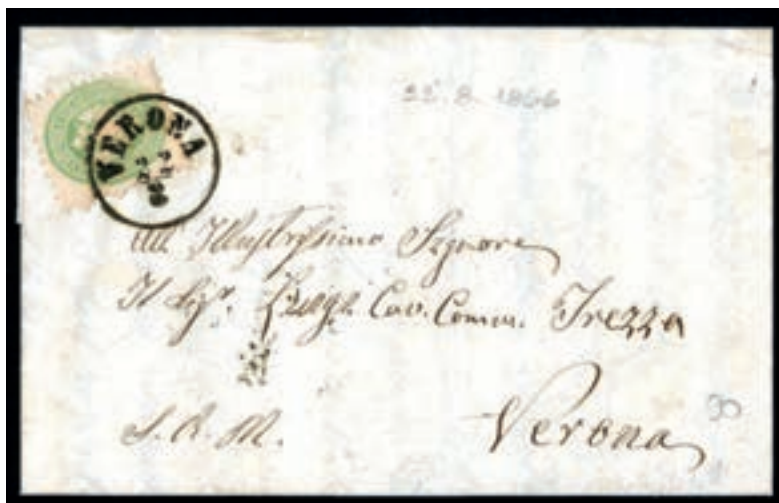 VERONA
22. 8. 1866
All' Illustrissimo Signore
Il Sigr. Luigi Cav. Comm. Trezza
S. R. M.
Verona
90